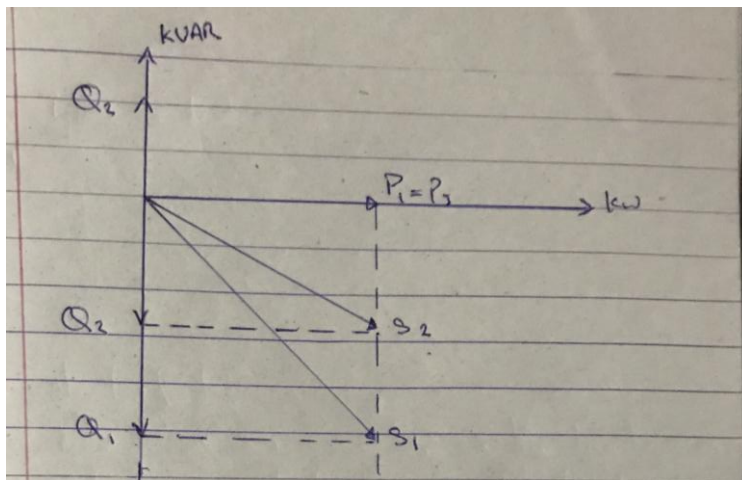 KVAR
Q₂
P₁=P₃
kw
Q₂
S₂
Q₁
S₁